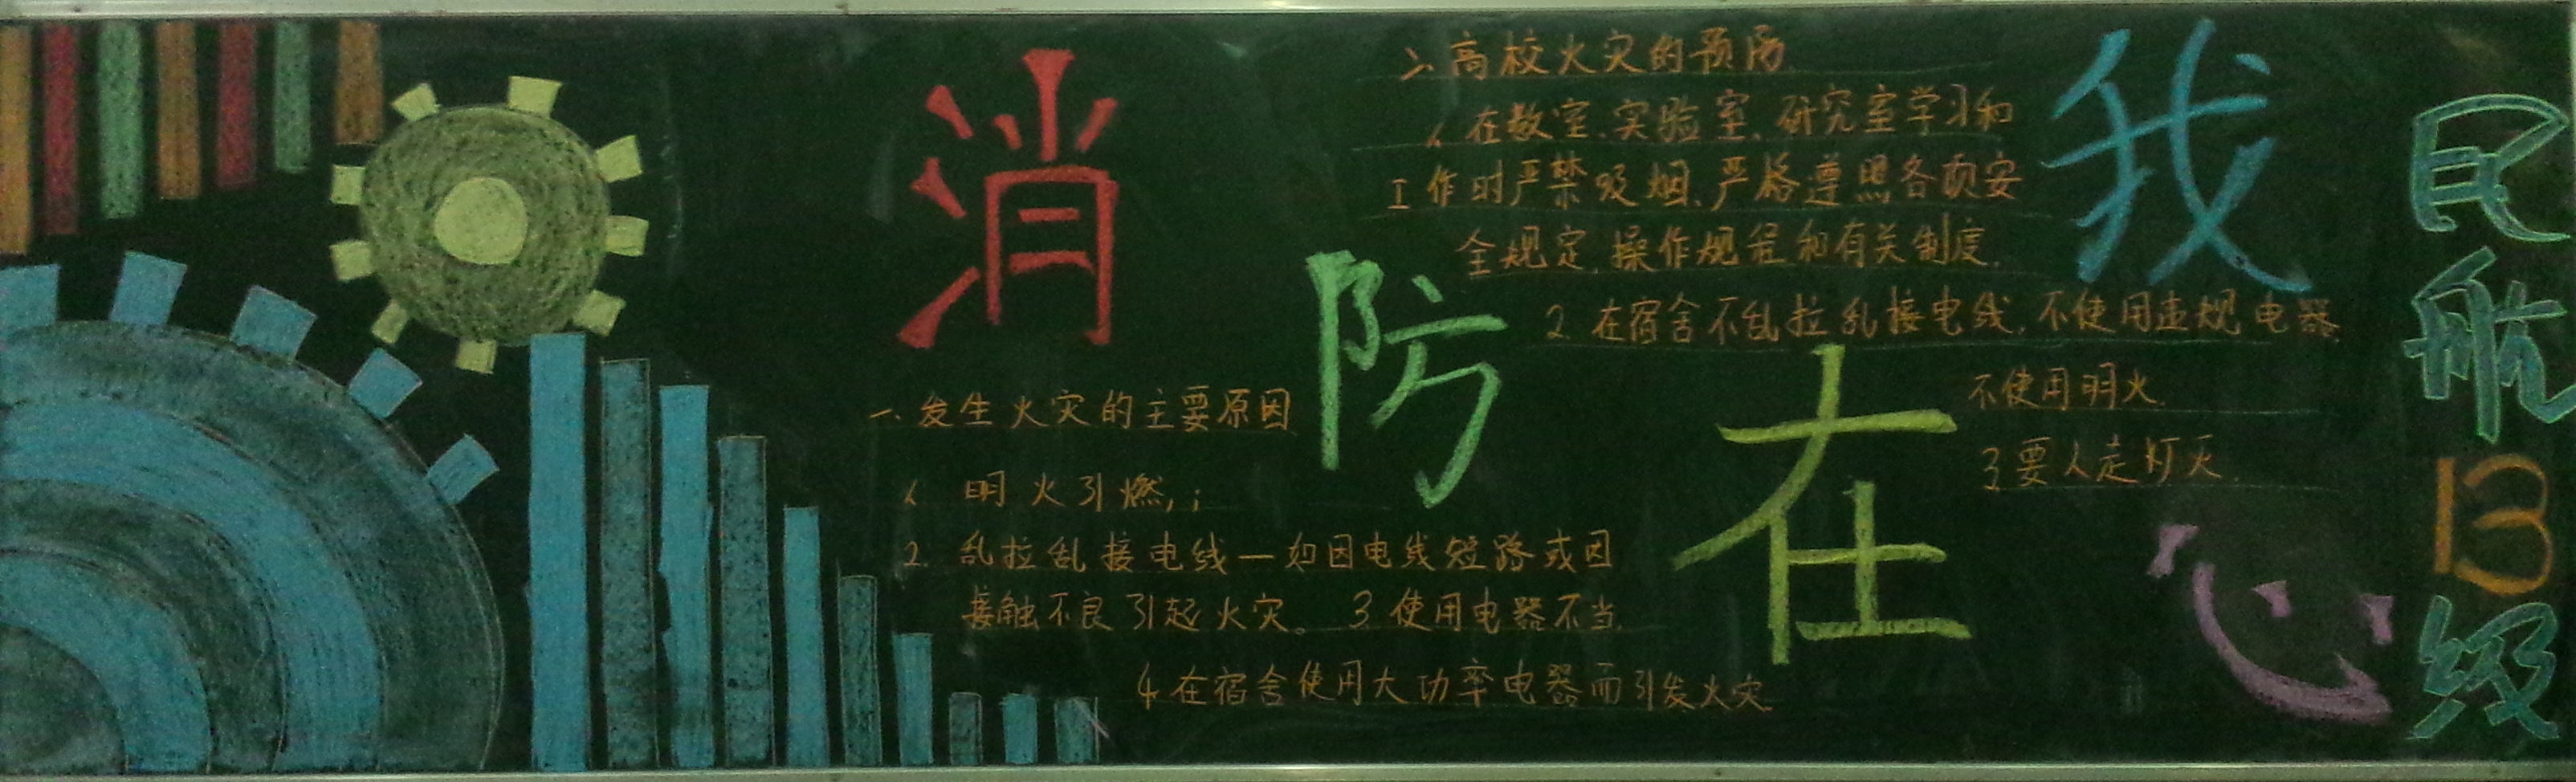 消防在我心
一、发生火灾的主要原因
1. 明火引燃,;
2. 乱拉乱接电线—如因电线短路或因
接触不良引起火灾。3.使用电器不当.
4.在宿舍使用大功率电器而引发火灾.
二、高校火灾的预防.
1.在教室、实验室、研究室学习和
工作时严禁吸烟、严格遵照各项安
全规定、操作规程和有关制度.
2.在宿舍不乱拉乱接电线,不使用违规电器.
不使用明火.
3.要人走灯灭.
民航13级